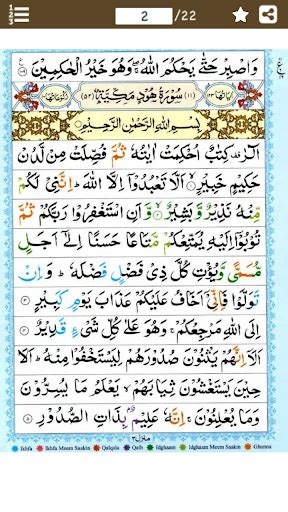 2 /22
وَاصْبِرْ حَتّٰى يَحْكُمَ اللّٰهُ ۖ وَهُوَ خَيْرُ الْحٰكِمِيْنَ
سُوْرَةُ هُوْدٍ مَكِّيَّةٌ (١١) (٥٢)
بِسْمِ اللّٰهِ الرَّحْمٰنِ الرَّحِيْمِ
الٓرٰ ۚ كِتٰبٌ اُحْكِمَتْ اٰيٰتُهٗ ثُمَّ فُصِّلَتْ مِنْ لَّدُنْ
حَكِيْمٍ خَبِيْرٍ ۙ اَلَّا تَعْبُدُوْٓا اِلَّا اللّٰهَ ؕ اِنَّنِيْ لَكُمْ
مِّنْهُ نَذِيْرٌ وَّبَشِيْرٌ ۙ وَّاَنِ اسْتَغْفِرُوْا رَبَّكُمْ ثُمَّ
تُوْبُوْٓا اِلَيْهِ يُمَتِّعْكُمْ مَّتَاعًا حَسَنًا اِلٰٓى اَجَلٍ
مُّسَمًّى وَّيُؤْتِ كُلَّ ذِيْ فَضْلٍ فَضْلَهٗ ؕ وَاِنْ
تَوَلَّوْا فَاِنِّيْٓ اَخَافُ عَلَيْكُمْ عَذَابَ يَوْمٍ كَبِيْرٍ
اِلَى اللّٰهِ مَرْجِعُكُمْ ۚ وَهُوَ عَلٰى كُلِّ شَيْءٍ قَدِيْرٌ
اَلَآ اِنَّهُمْ يَثْنُوْنَ صُدُوْرَهُمْ لِيَسْتَخْفُوْا مِنْهُ ؕ اَلَا
حِيْنَ يَسْتَغْشُوْنَ ثِيَابَهُمْ ۙ يَعْلَمُ مَا يُسِرُّوْنَ
وَمَا يُعْلِنُوْنَ ۚ اِنَّهٗ عَلِيْمٌۢ بِذَاتِ الصُّدُوْرِ
منزل ٣
Ikhfa Ikhfa Meem Saakin Qalqala Qalb Idghaam Idghaam Meem Saakin Ghunna